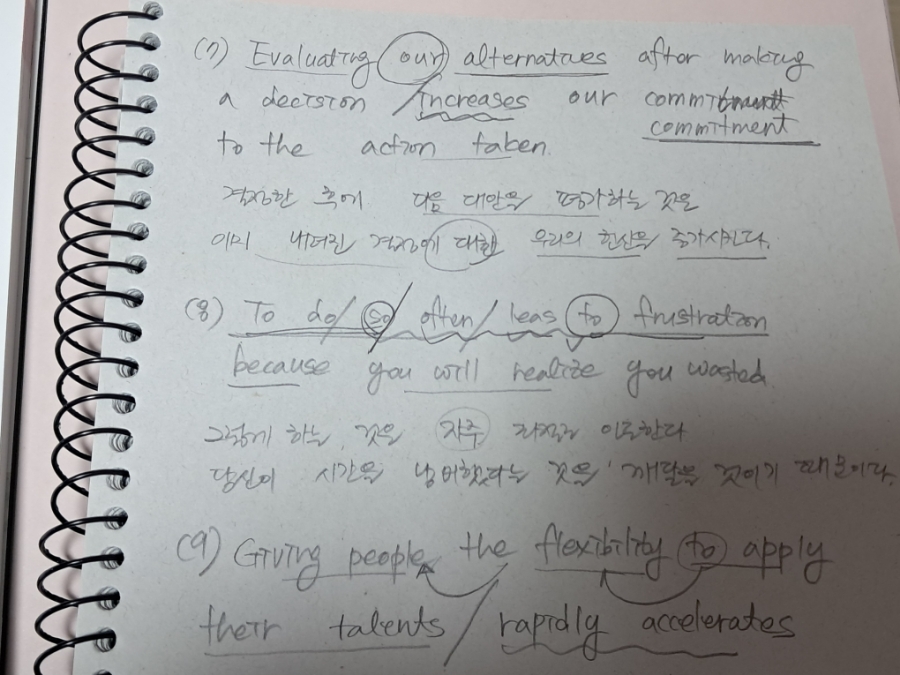 (7) Evaluating our alternatives after making
a decision increases our
commitment
to the action taken.
결정한 후에 다음 대안을 평가하는 것은
이미 내려진 결정에 대한 우리의 헌신을 증가시킨다.
(8) To do so often leas to frustration
because you will realize you wasted
그렇게 하는 것은 자주 좌절로 이르한다
당신이 시간을 낭비했다는 것을 깨달을 것이기 때문이다.
(9) Giving people the flexibility to apply
their talents rapidly accelerates